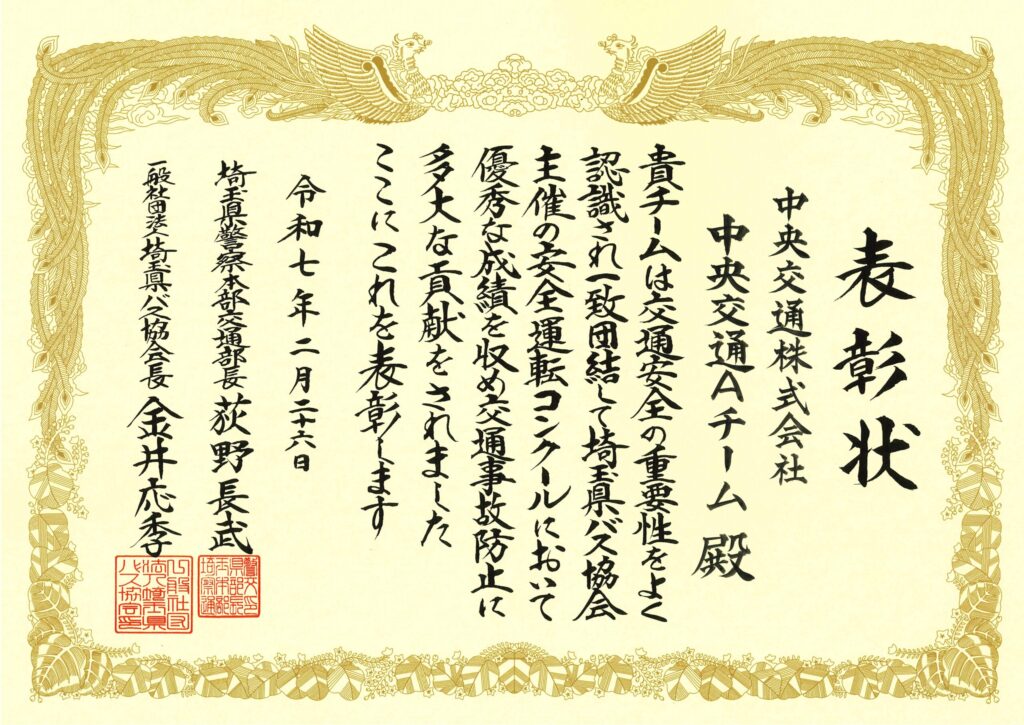 表彰状
中央交通株式会社
中央交通Aチーム 殿
貴チームは交通安全の重要性をよく
認識され一致団結して埼玉県バス協会
主催の安全運転コンクールにおいて
優秀な成績を収め交通事故防止に
多大な貢献をされました
ここにこれを表彰します
令和七年二月二十六日
埼玉県警察本部交通部長 荻野長武
一般社団法人埼玉県バス協会長 金井応季